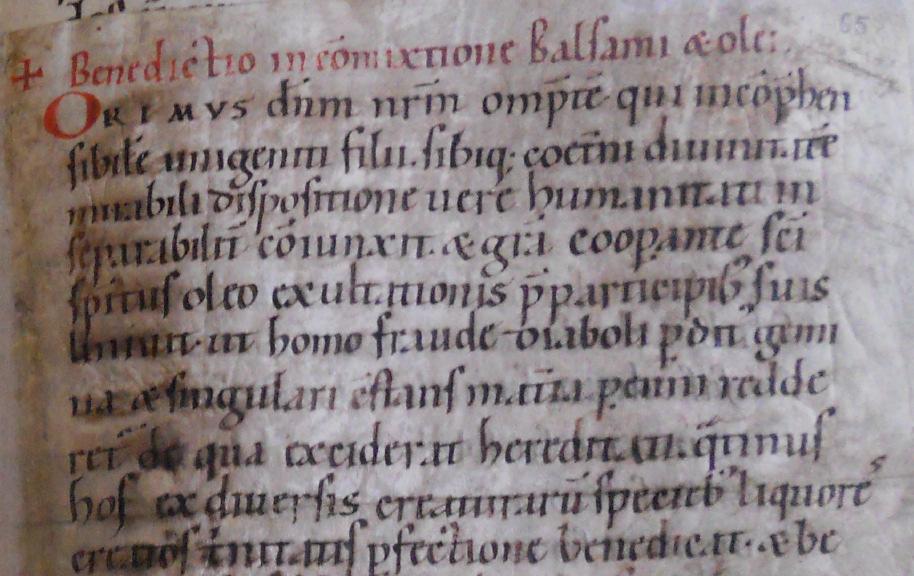 65
+ Benedictio in cōmixtione Balsami & olei.
ORIMVS dn̄m nr̄m omp̄te qui incōp̄hen
sibile unigeniti filii sibiq; coet̄ni diuinitate
mirabili dispositione uere humanitati in
separabilit̄ cōiunxit. & gr̄a coop̄ante sc̄i
sp̄itus oleo exultationis p̄ participib; suis
liniuit. ut homo fraude diaboli p̄dit gemi
na & singulari c̄stans mat̄ia p̄enni redde
ret de qua exciderat hereditati. q̄tinus
hos ex diuersis creaturarū specieb; liquores
creatos t̄nitatis p̄fectione benedicat. & be